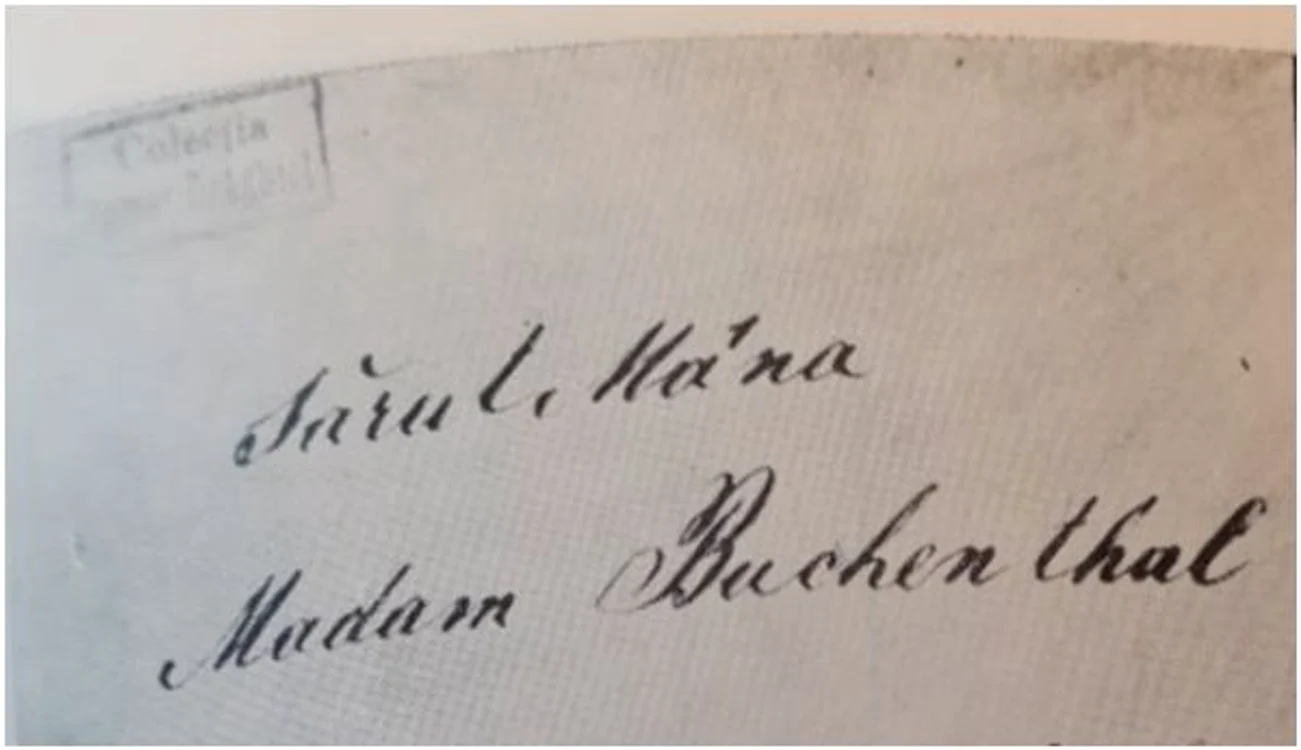 Colecția
Sărut, Mâna
Madam Buchenthal